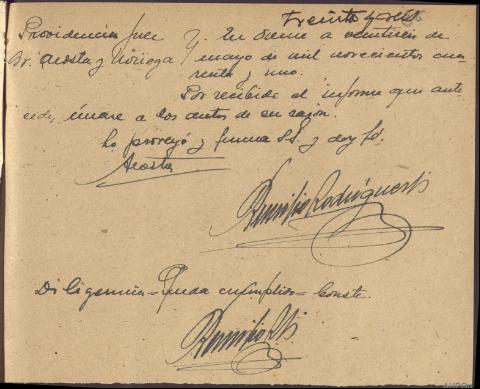 Treinta y
Providencia Juez
Sr. Acosta y Noriega
En Orense a veintiseis de
mayo de mil novecientos cua
renta y uno.
Por recibido el informe que ante
cede, únase a los autos de su razón.
Lo proveyó y firma SSª y doy fé.
Acosta
Remigio Rodríguez
Diligencia = Queda cumplido = Conste.
Remigio